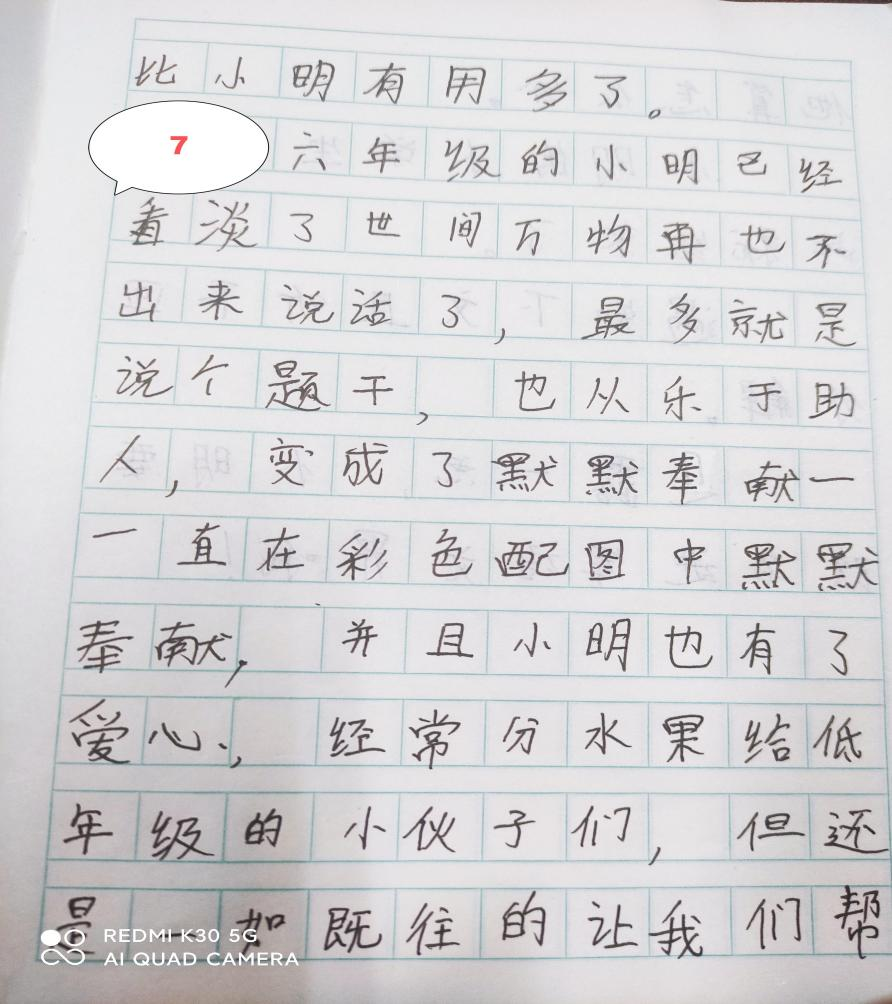 比小明有用多了。
7
六年级的小明已经
看淡了世间万物再也不
出来说话了，最多就是
说个题干，也从乐于助
人，变成了默默奉献一
一直在彩色配图中默默
奉献，并且小明也有了
爱心，经常分水果给低
年级的小伙子们，但还
是 如既往的让我们帮
REDMI K30 5G
AI QUAD CAMERA